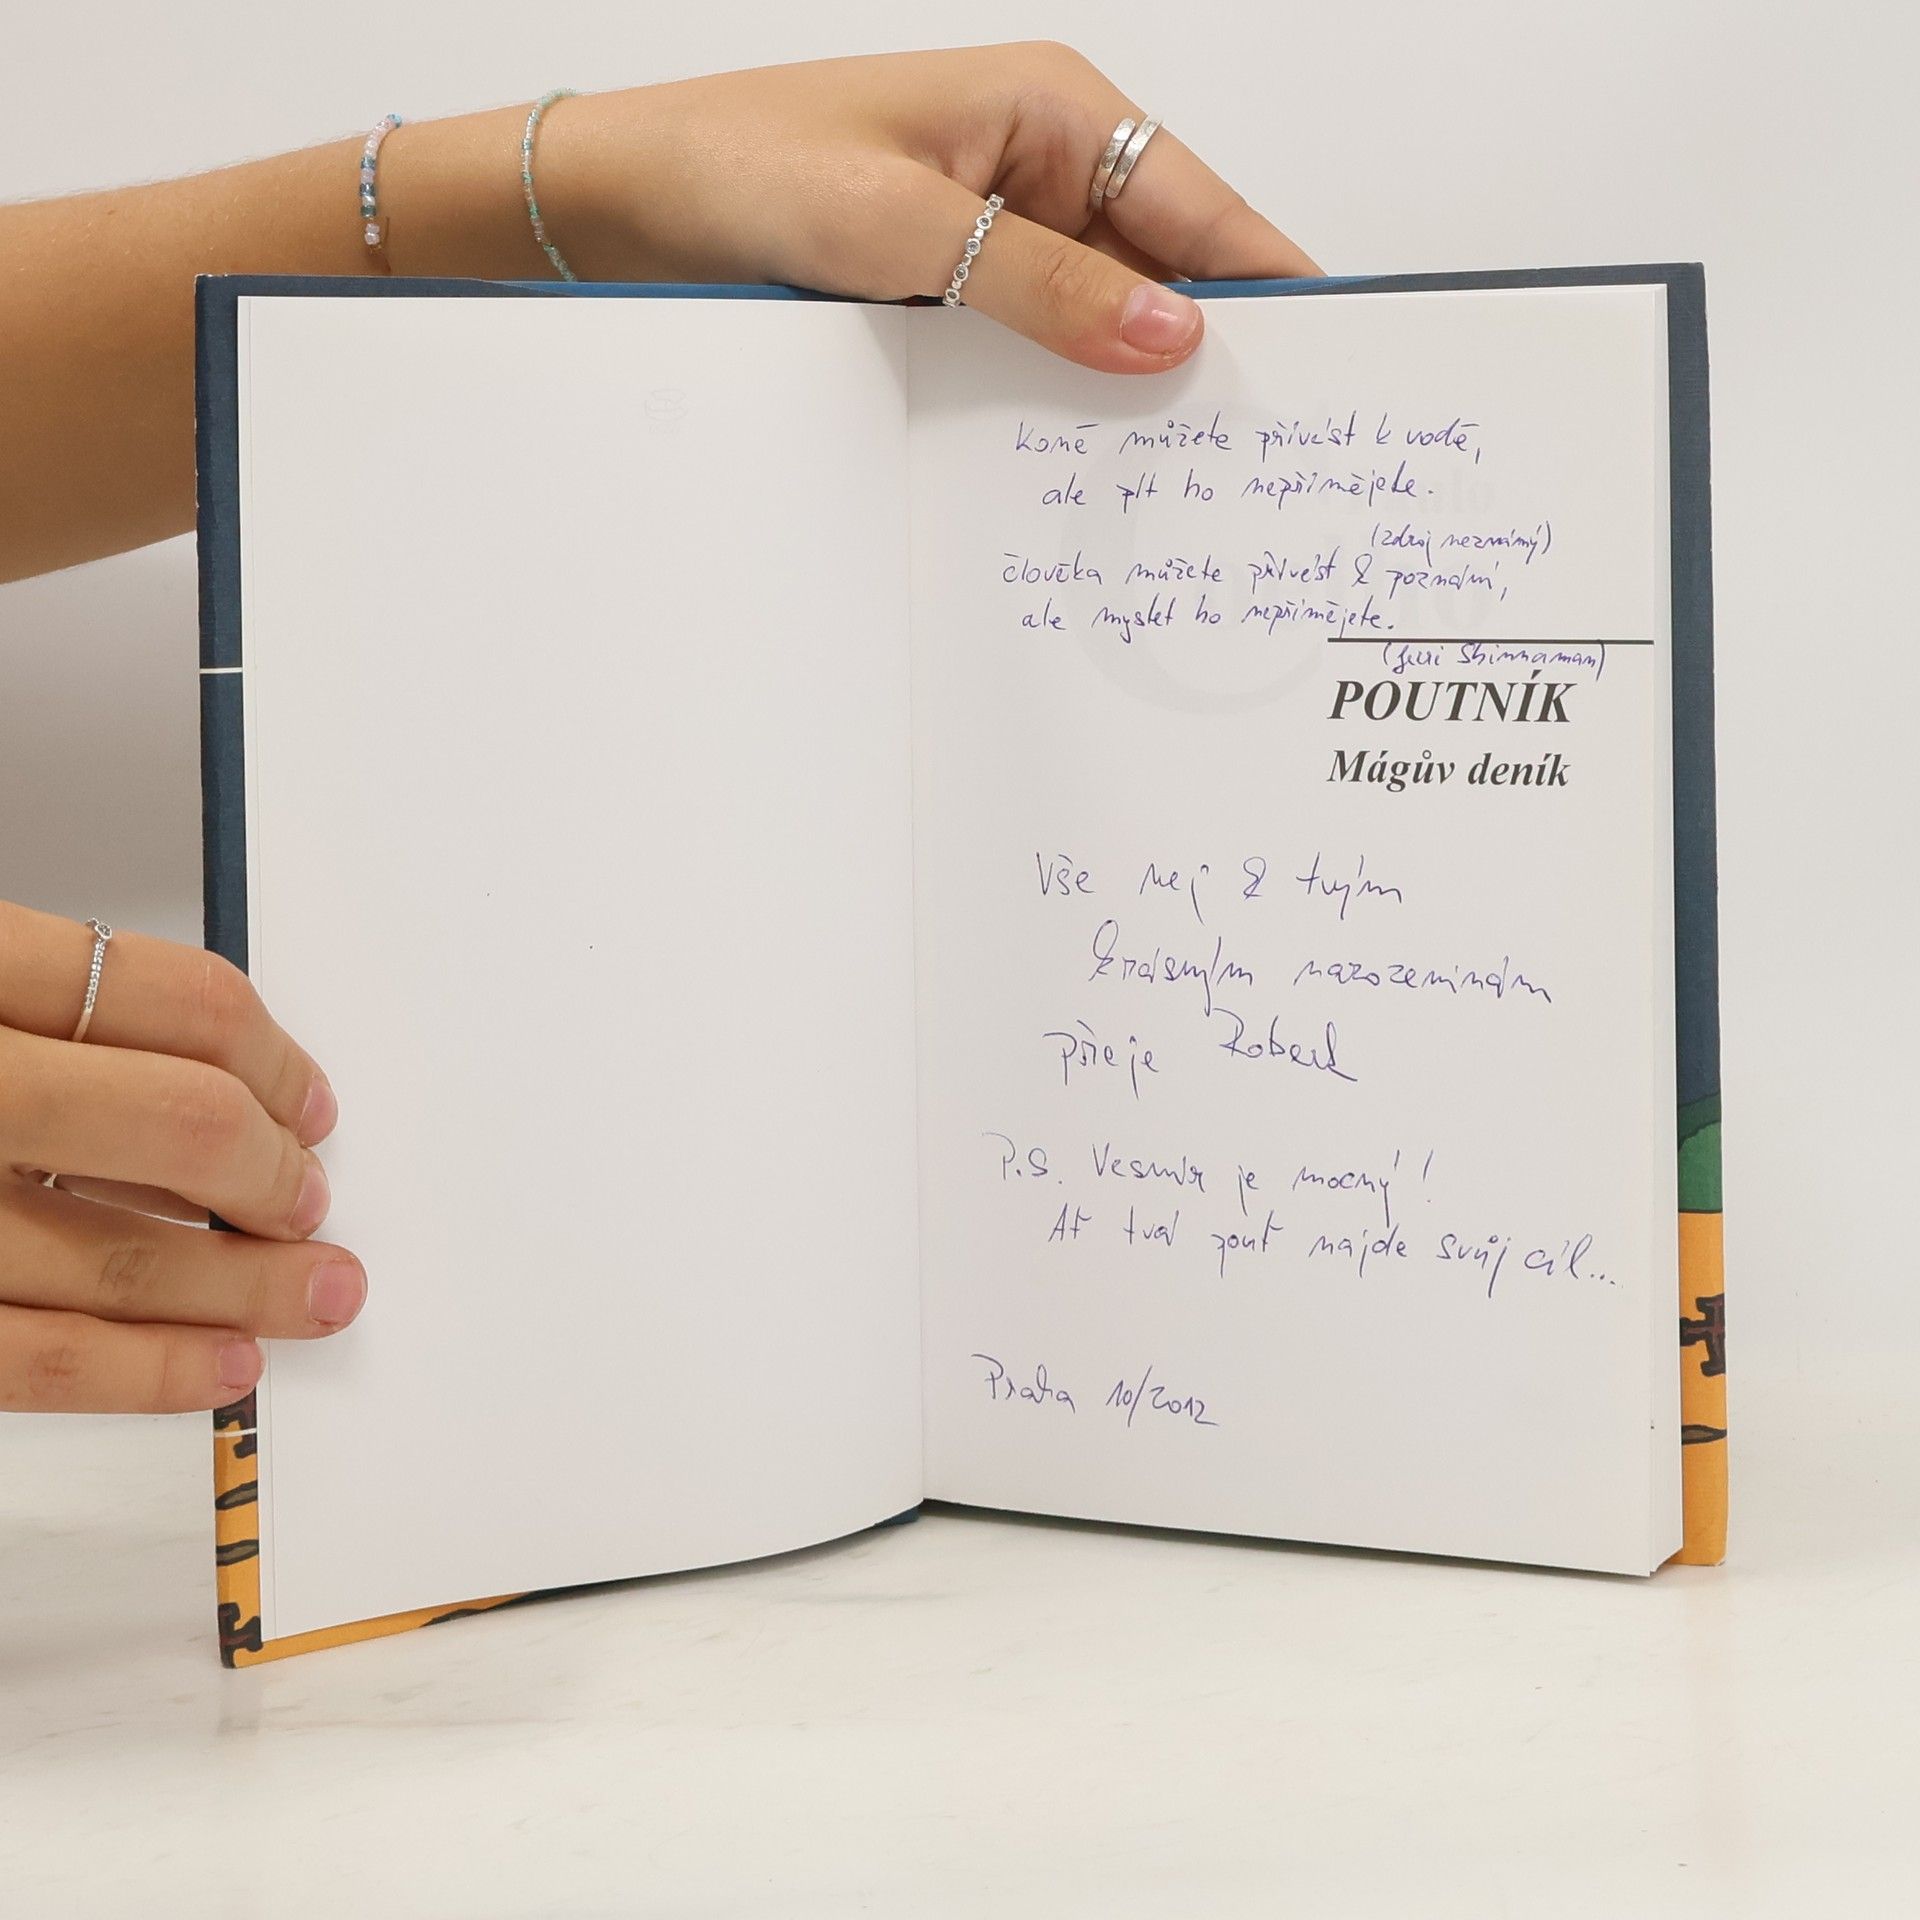 Koně můžete přivést k vodě,
ale pít ho nepřimějete.
(zdroj neznámý)
člověka můžete přivést k poznání,
ale myslet ho nepřimějete.
(Jerri Shinnaman)
POUTNÍK
Mágův deník
Vše nej k tvým
krásným narozeninám
přeje Robert
P.S. Vesmír je mocný!
Ať tvá pouť najde svůj cíl...
Praha 10/2012